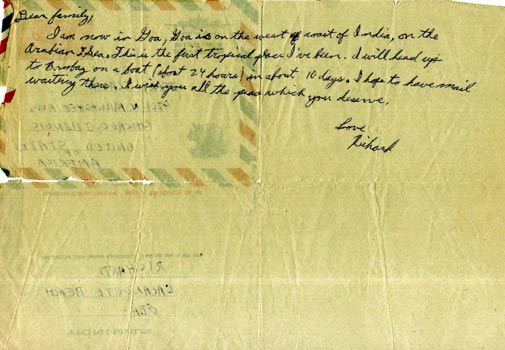 Dear family,
I am now in Goa, Goa is on the west of coast of India, on the
Arabian Sea. This is the first tropical place I've been. I will head up
to Bombay on a boat (about 24 hours) in about 10 days. I hope to have mail
waiting there. I wish you all the peace which you deserve.
Love
Richard
CHICAGO, ILLINOIS
UNITED STATES
AMERICA
RICHARD
CALANGUTE BEACH
GOA
INDIA